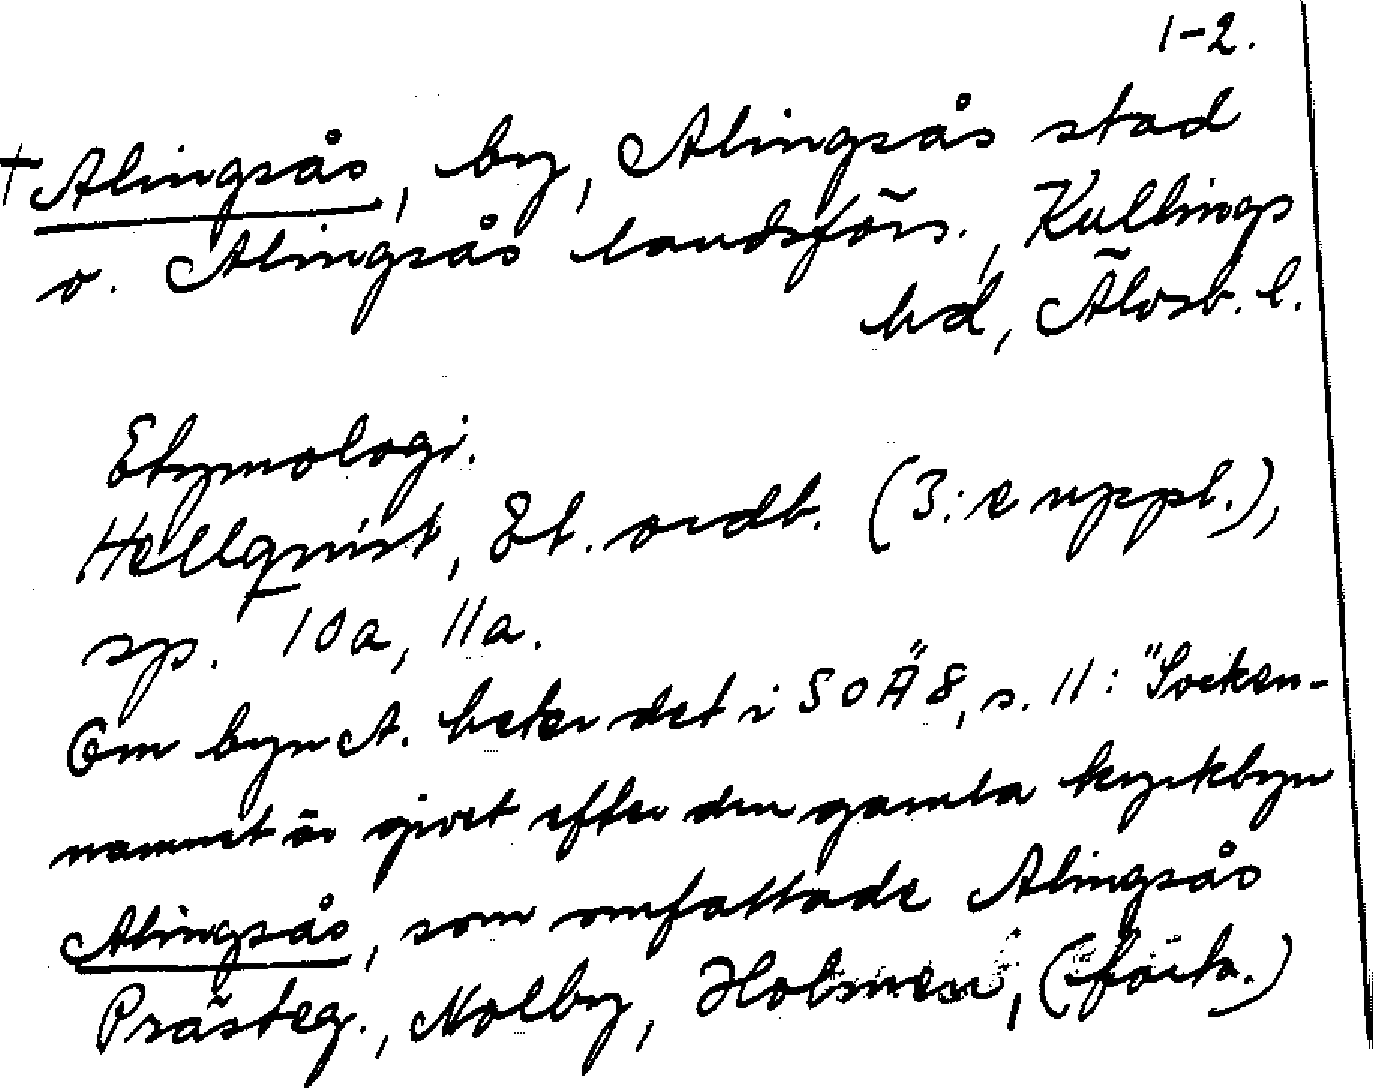 1-2.
† Alingsås, by, Alingsås stad
o. Alingsås landsförs., Kullings
hd, Älvsb. l.
Etymologi.
Hellquist, Et. ordb. (3:e uppl.),
sp. 10a, 11a.
Om byn A. heter det i SOÄ 8, s. 11: "Socken-
namnet är givet efter den gamla kyrkbyn
Alingsås, som omfattade Alingsås
Prästeg., Nolby, Holmen, (forts.)